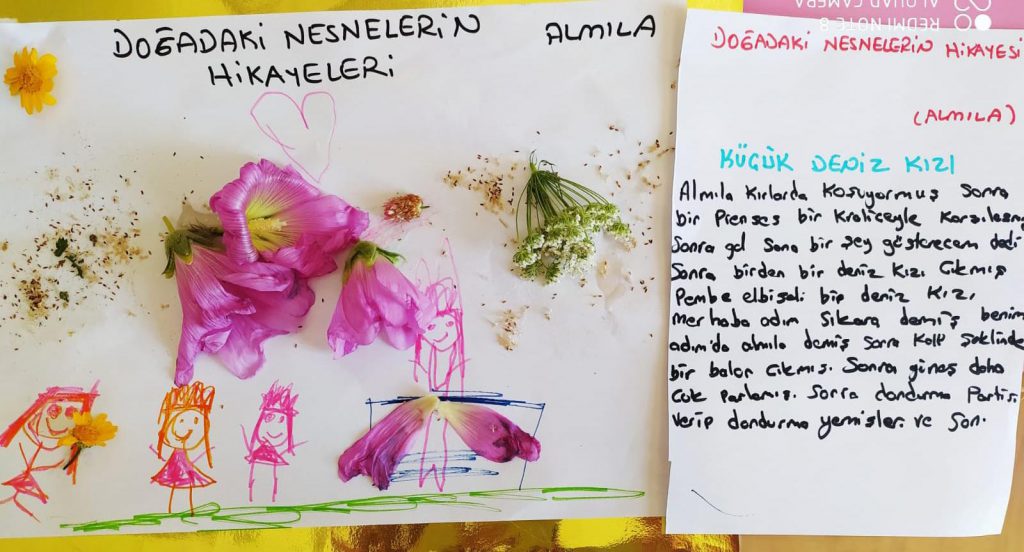 DOĞADAKİ NESNELERİN
HİKAYELERİ
ALMİLA
REDMI NOTE 8
AI QUAD CAMERA
DOĞADAKİ NESNELERİN HİKAYESİ
(ALMİLA)
KÜÇÜK DENİZ KIZI
Almila kırlarda koşuyormuş Sonra
bir Prenses bir Kraliçeyle Karşılaşmış
Sonra gel Sana bir şey göstereceğim dedi
Sonra birden bir deniz kızı Çıkmış
Pembe elbiseli bir deniz kızı
merhaba adım Sikara demiş benim
adım'da almila demiş Sonra Kalp Şeklinde
bir balon Çıkmış. Sonra güneş daha
Çok parlamış. Sonra dondurma Partisi
Verip dondurma yemişler ve Son.